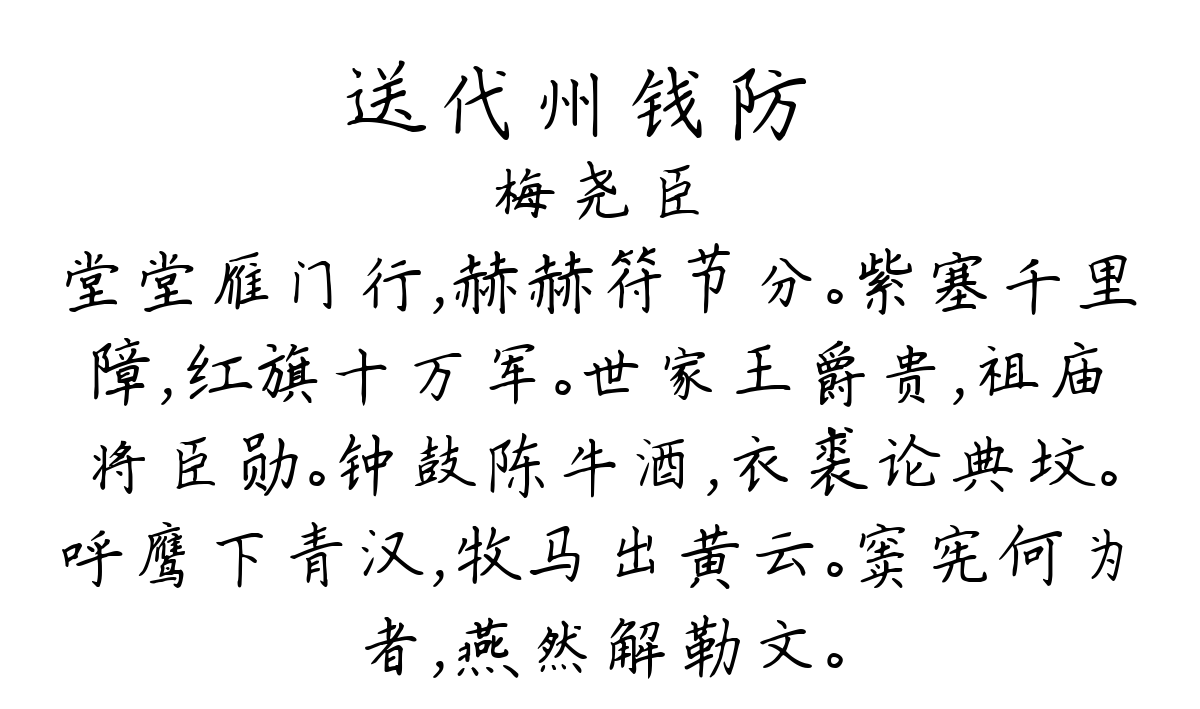 送代州钱防
梅尧臣
堂堂雁门行,赫赫符节分。紫塞千里
障,红旗十万军。世家王爵贵,祖庙
将臣勋。钟鼓陈牛酒,衣裘论典坟。
呼鹰下青汉,牧马出黄云。窦宪何为
者,燕然解勒文。